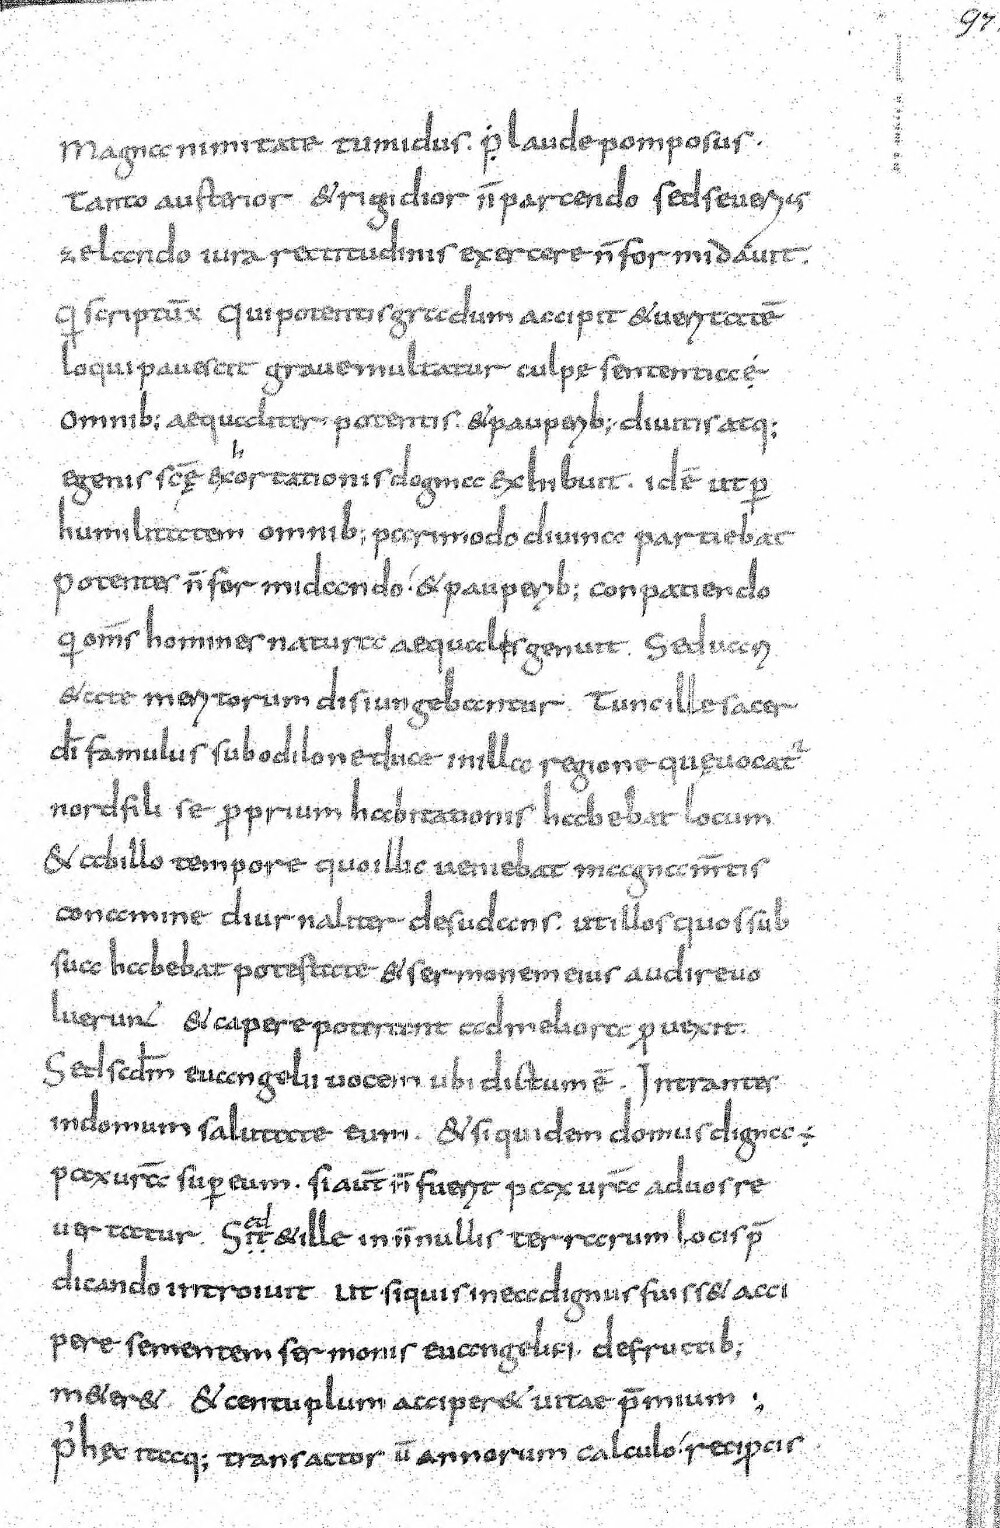 97.
magnanimitate tumidus. p̣ laude pomposus.
Tanto austerior & rigidior n̄ parcendo sed seuerius
zelando iura rectitudinis exercere n̄ formidauit.
q scriptū x Qui potentis gradum accipit & ueritatē
loqui pauescit graue multatur culpę sententia ẹ́
omnib; aequaliter potentis. & pauperib; diuitis atq;
egenis scę̄ excortationis dogma exhibuit. idē ut ꝑ
h
humilitatem omnib; parimodo diuina partiebat
potenter n̄ formidando. & pauperib; conpatiendo
q om̄s homines natura aequales genuit. Seduari
&ate meritorum disiungebantur. Tunc ille sacer
dī famulus sub odilone duce in illa regione quę uocat᷑
nordfili se ꝓprium habitationis habebat locum
& ab illo tempore quo illic ueniebat magna m̄tis
conamine diurnaliter desudans. ut illos quos sub
sua habebat potestate & sermonem eius audire uo
luerunt & capere poterant ad meliora ꝓuexit.
Sed scdm̄ euangelii uocem ubi dictum ē. Intrantes
in domum salutate eum. & siquidem domus digna ÷
pax urā sup eum. si aut̄ n̄ fuerit pax urā ad uos re
uertatur. Sit & ille in n̄nullis terrarum locis p̄
ed
dicando introiuit ut siquis in ea dignus fuiss& acci
pere sementem sermonis euangelici. de fructib;
m&er& & centuplum acciper& uitae p̄mium ;
P' hęc itaq; transactor ū annorum calculo reciꝓcis